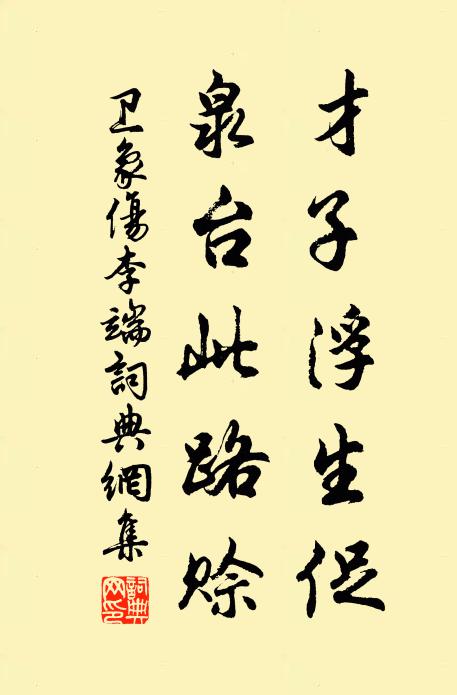 才子浮生促
泉台此路赊
卫象傷李端詞典網集
詞典網印